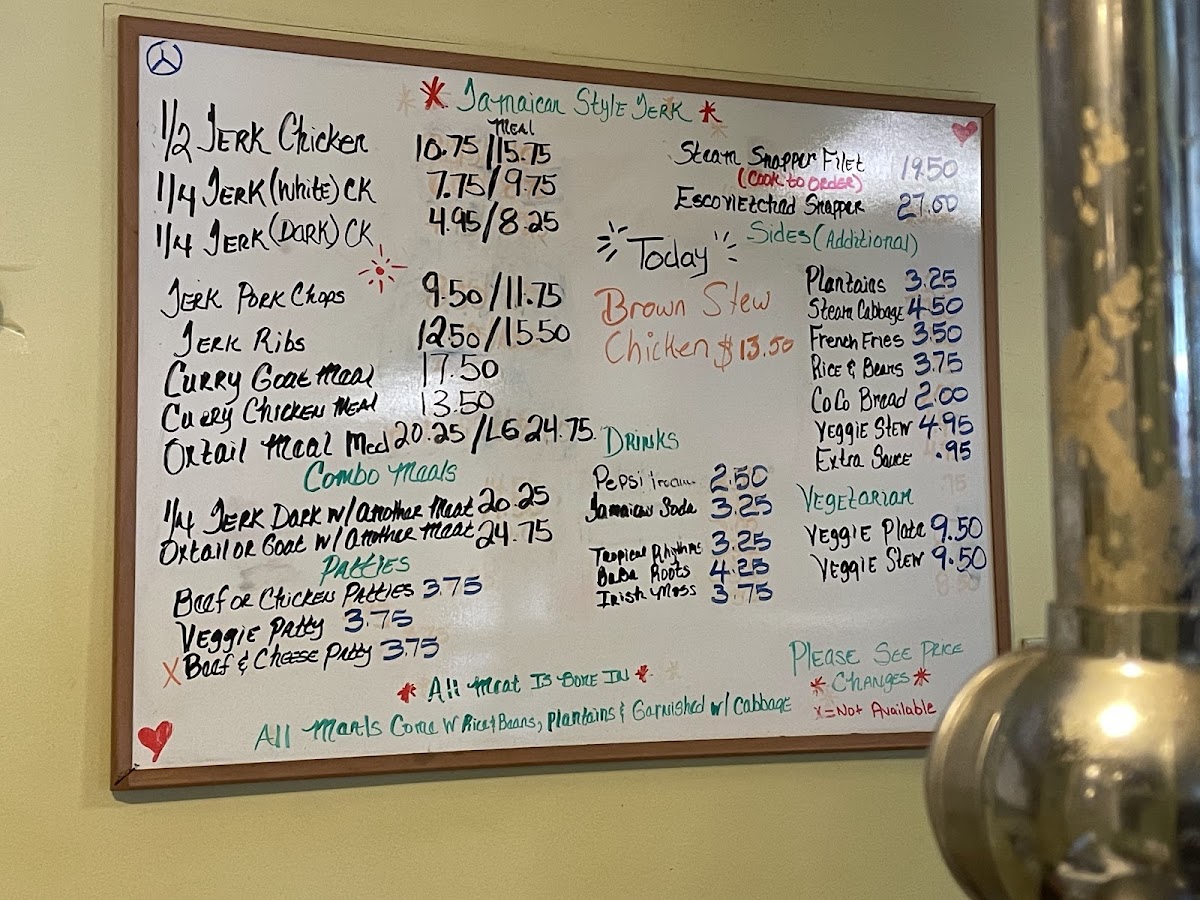 * Jamaican Style Jerk *
Meal
1/2 Jerk Chicken 10.75/15.75
1/4 Jerk (White) CK 7.75/9.75
1/4 Jerk (Dark) CK 4.95/8.25
Jerk Pork Chops 9.50/11.75
Jerk Ribs 12.50/15.50
Curry Goat Meal 17.50
Curry Chicken Meal 13.50
Oxtail Meal Med 20.25/LG 24.75
Combo Meals
1/4 Jerk Dark w/ another Meat 20.25
Oxtail or Goat w/ another Meat 24.75
Patties
Beef or Chicken Patties 3.75
Veggie Patty 3.75
X Beef & Cheese Patty 3.75
Steam Snapper Filet 19.50
(Cook to Order)
Escovietched Snapper 27.00
Today
Brown Stew
Chicken $13.50
Drinks
Pepsi 2.50
Jamaican Soda 3.25
Tropical Rhythms 3.25
Baba Roots 4.25
Irish Moss 3.75
Sides (Additional)
Plantains 3.25
Steam Cabbage 4.50
French Fries 3.50
Rice & Beans 3.75
CoCo Bread 2.00
Veggie Stew 4.95
Extra Sauce .95
Vegetarian
Veggie Plate 9.50
Veggie Stew 9.50
* All Meat Is Bone In *
All Meals Come w Rice & Beans, Plantains & Garnished w/ Cabbage
Please See Price
* Changes *
x=Not Available